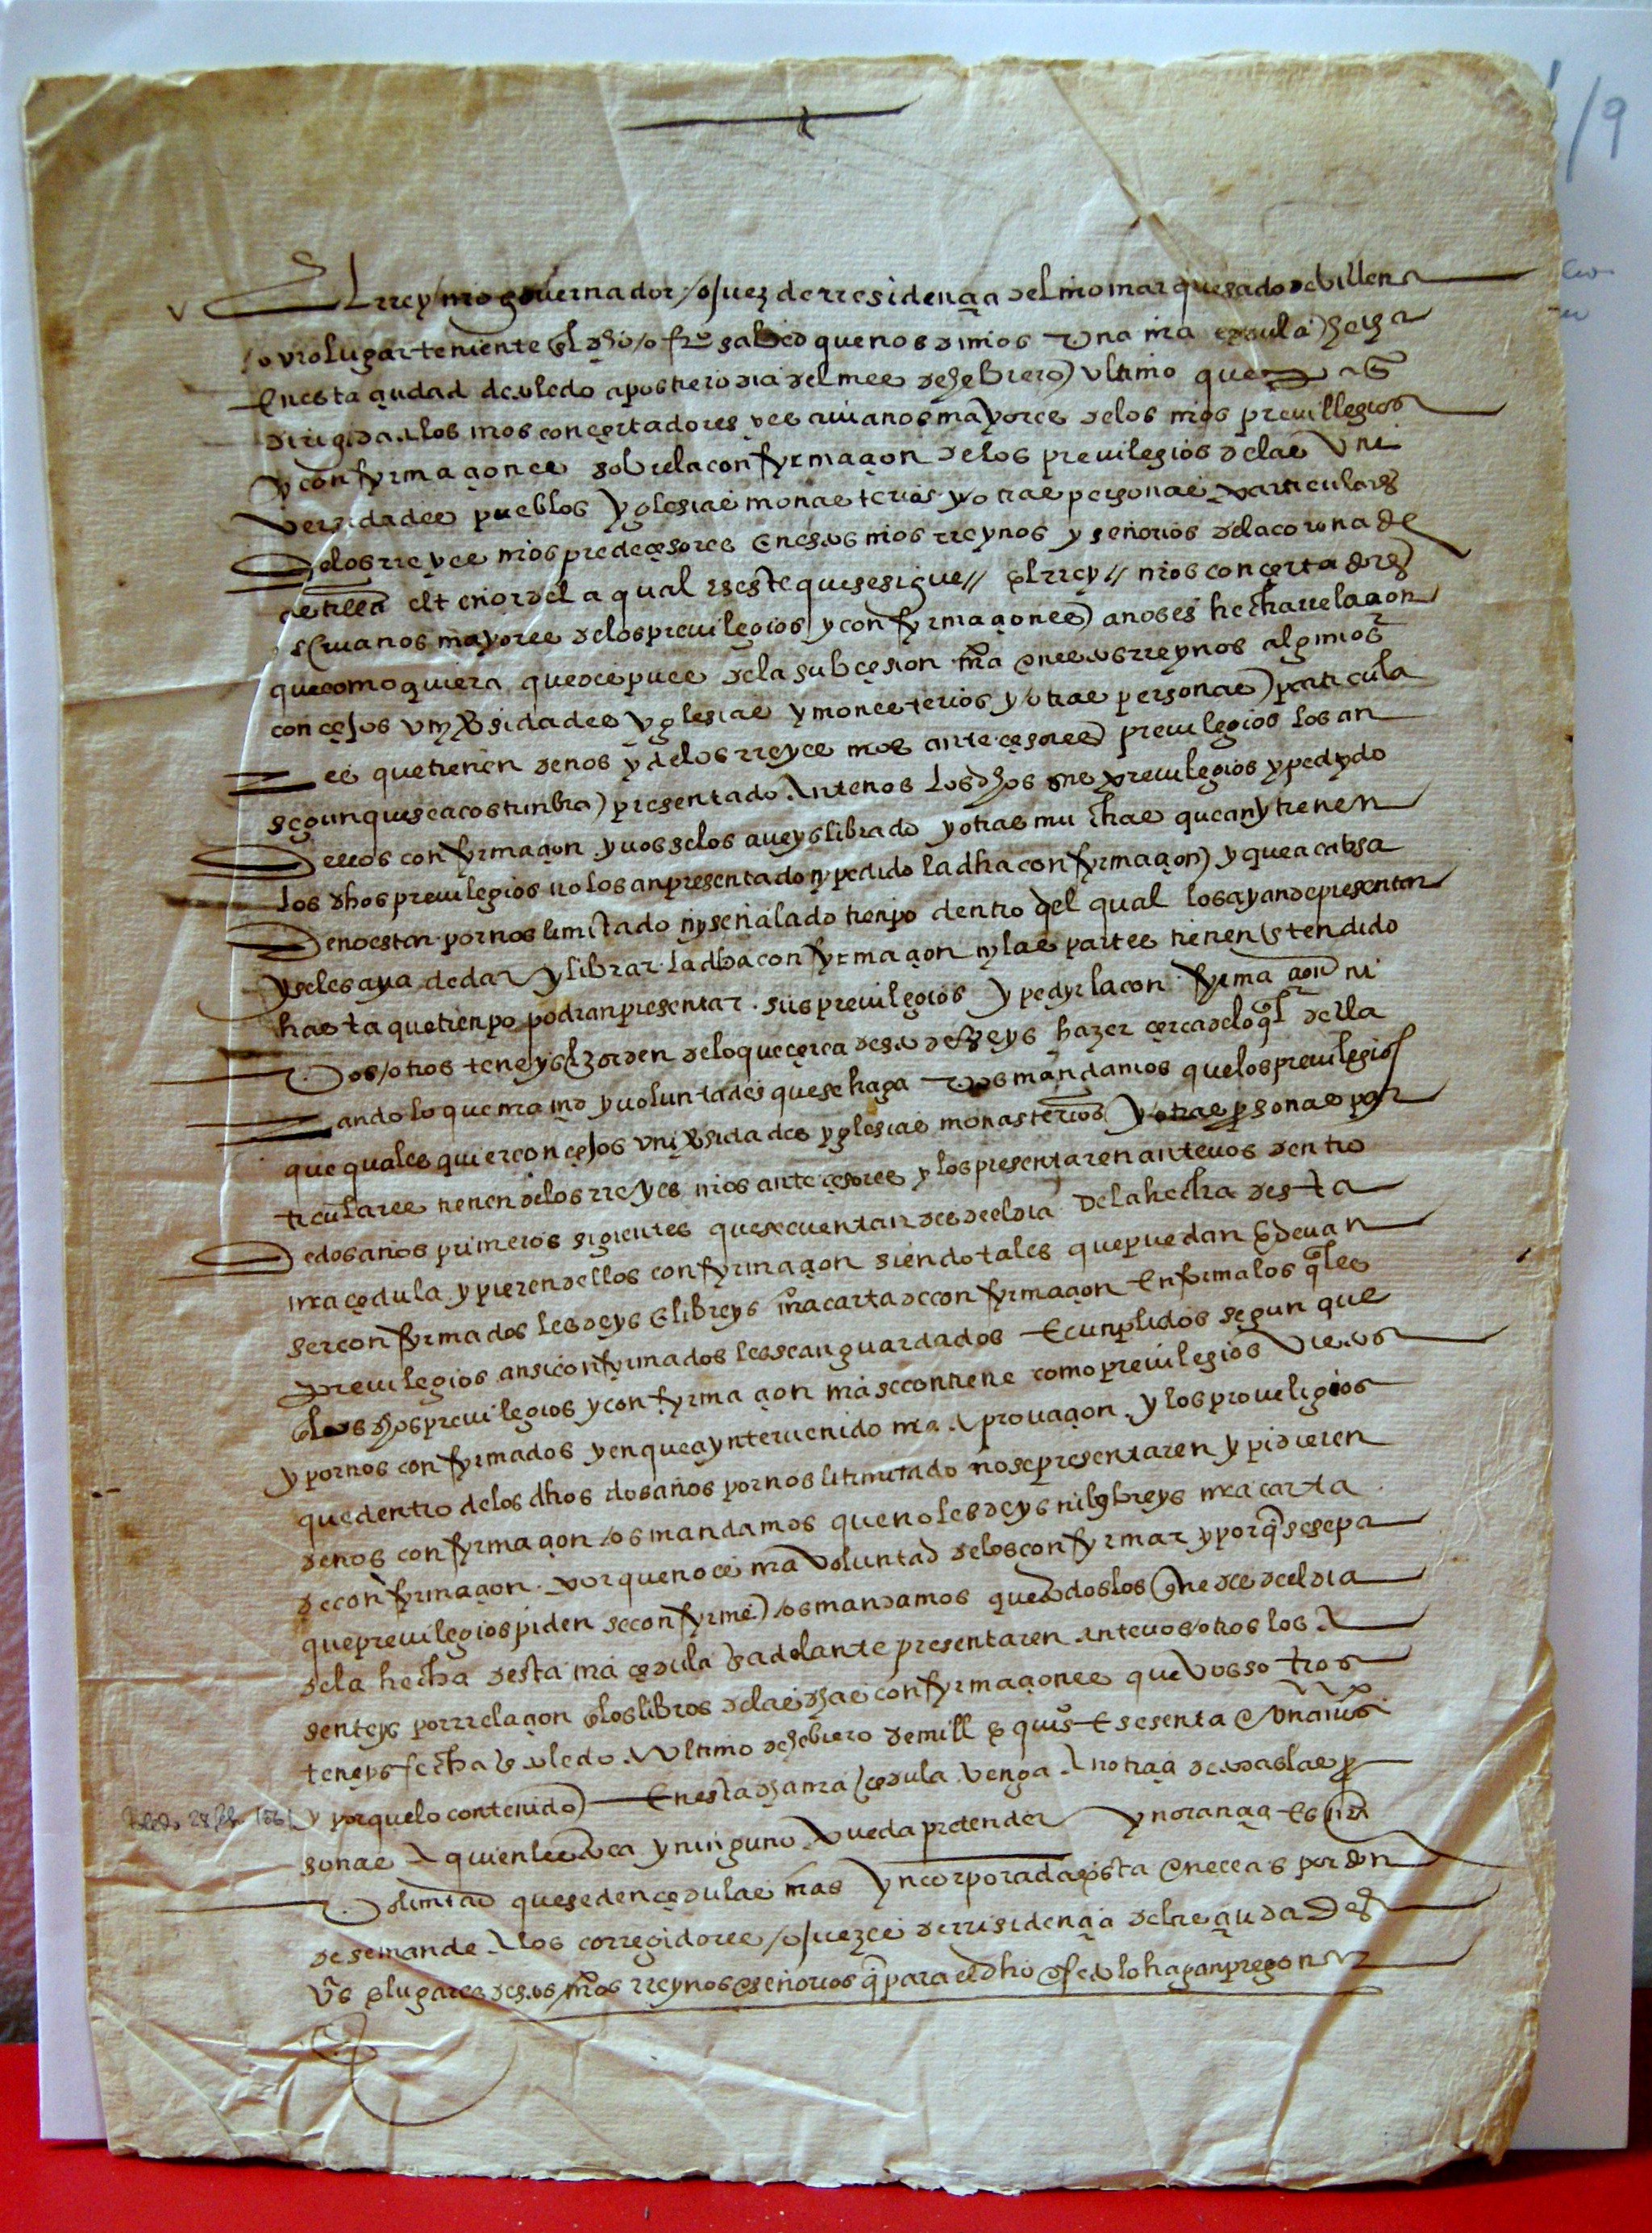 /9
El rrey / nro governador / o juez de rresidençia del nro marquesado de Villena
o vro lugarteniente el dho ofiº sabed que nos dimos una nra çedula fecha
en esta çiudad de toledo a postrero dia del mes de hebrero ultimo que
dirigida a los nros conçertadores y escrivanos mayores de los nros previllegios
y confyrmaçiones sobre la confyrmaçion de los previlegios de las uni
versidades pueblos yglesias monasterios y otras personas particulares
de los rreyes nros predeçesores en estos nros rreynos y señorios de la corona de
castilla el tenor de la qual es este que se sigue // el rrey // nros conçertadores
escrivanos mayores de los previlegios y confyrmaçiones a nos es hecha rrelaçion
que como quiera que despues de la subçesion nra en estos rreynos algunos
conçejos unyversidades yglesias y monesterios y otras personas particula
res que tienen de nos y de los rreyes nros anteçesores previlegios los an
segun que se acostunbra presentado ante nos los dhos sus previlegios y pedydo
dellos confyrmaçion y vos se los aveys librado y otras muchas que any tienen
los dhos previlegios no los an presentado ny pedido la dha confyrmaçion y que a cabsa
de no estar por nos limitado ny señalado tienpo dentro del qual los ayan de presentar
y se les aya de dar y librar la dha confyrmaçion ny las partes tienen estendido
hasta que tienpo podran presentar sus previlegios y pedyr la confyrmaçion ni
vosotros teneys horden de lo que çerca desto deveys hazer çerca de lo ql della
rando lo que nra md y voluntad es que se haga vos mandamos que los previlegios
que quales quier conçejos universidades yglesias monasterios y otras personas par
ticulares tienen de los rreyes nros anteçesores y los presentaren ante vos dentro
de dos años primeros siguientes que se cuentan desde el dia de la hecha desta
nra çedula y pieren dellos confyrmaçion siendo tales que puedan e devan
ser confyrmados les deys e libreys nra carta de confyrmaçion en forma los qles
previlegios ansi confyrmados les sean guardados e cunplidos segun que
en los dhos previlegios y confyrmaçion nra se contiene como previlegios vistos
y por nos confyrmados y en que a yntervenido nra aprovaçion y los proveligios
que dentro de los dhos dos años por nos litimitado no se presentaren y pidieren
de nos confyrmaçion os mandamos que no les deys ni libreys nra carta
de confyrmaçion porque no es nra voluntad de los confyrmar y porq se sepa
que previlegios piden se confyrme os mandamos que todos los que desde el dia
de la hecha desta nra çedula e adelante presentaren ante vosotros los a
senteys por rrelaçion en los libros de las dhas confyrmaçiones que vosotros
teneys fecha en toledo a ultimo de hebrero de mill e quis e sesenta e un años
Toledo 28 feb. 1561
y porque lo contenido en esta dha nra çedula venga a notiçia de todas las per
sonas a quien lo toca y ninguno pueda pretender ynorançia es nra
voluntad que se den çedulas nras yncorporada esta en ellas por don
de se mande a los corregidores / o juezes de rrisidençia de las çiudades
vªs e lugares destos nros rreynos e señorios q para el dho efeto lo hagan pregonar